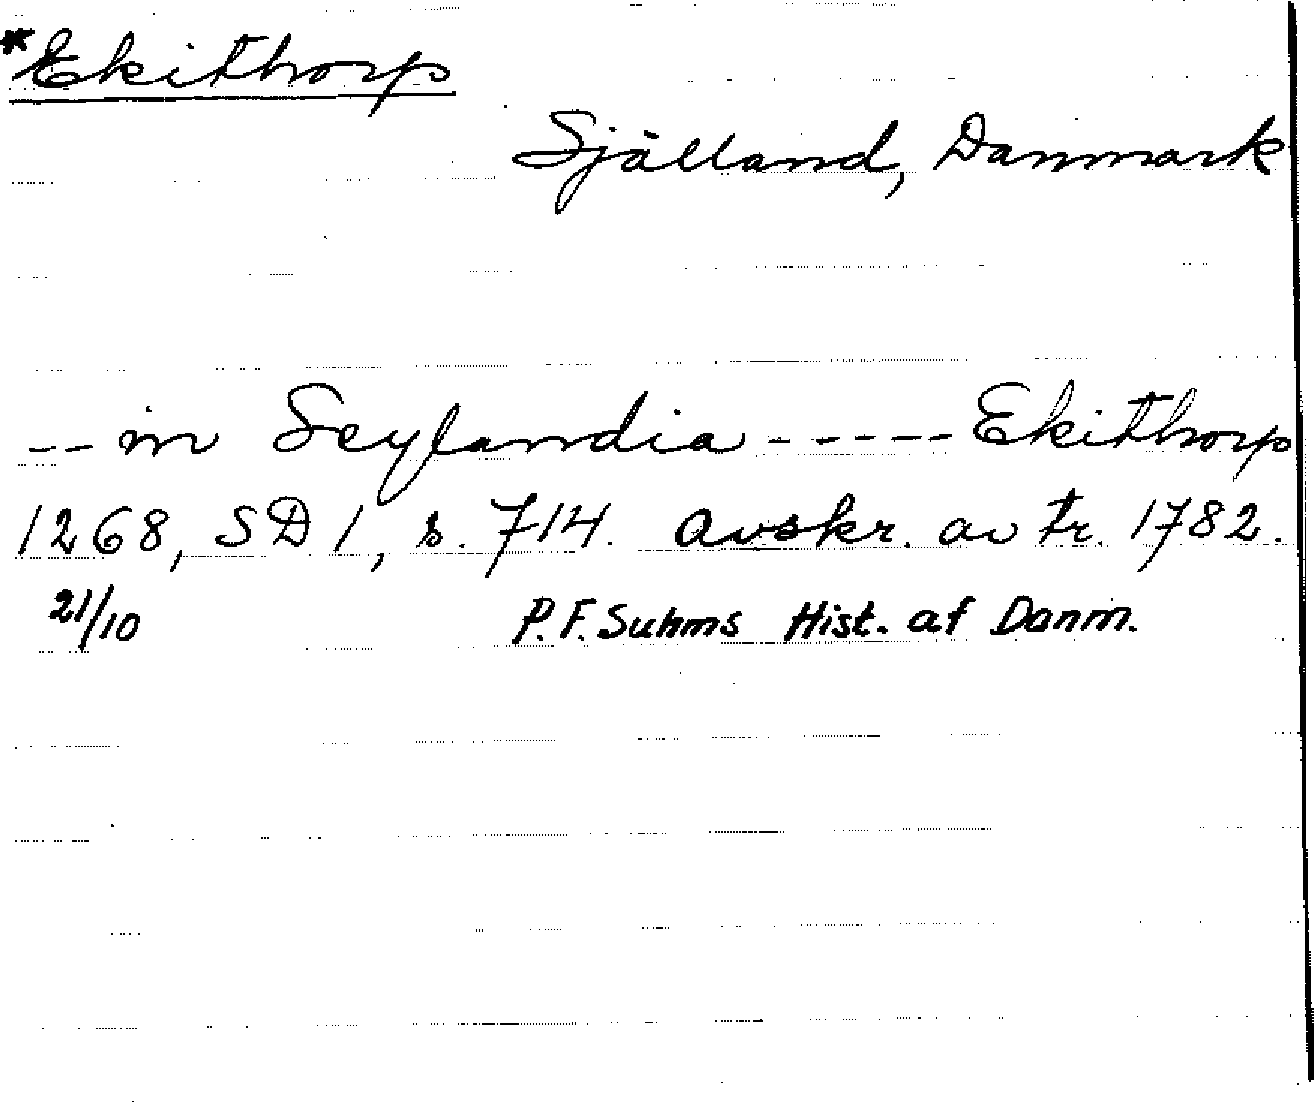 *Ekithorp
Själland, Danmark
-- in Seylandia ----- Ekithorp
1268, SD 1, s. 714. avskr. av tr. 1782.
21/10 P.F. Suhms Hist. af Danm.